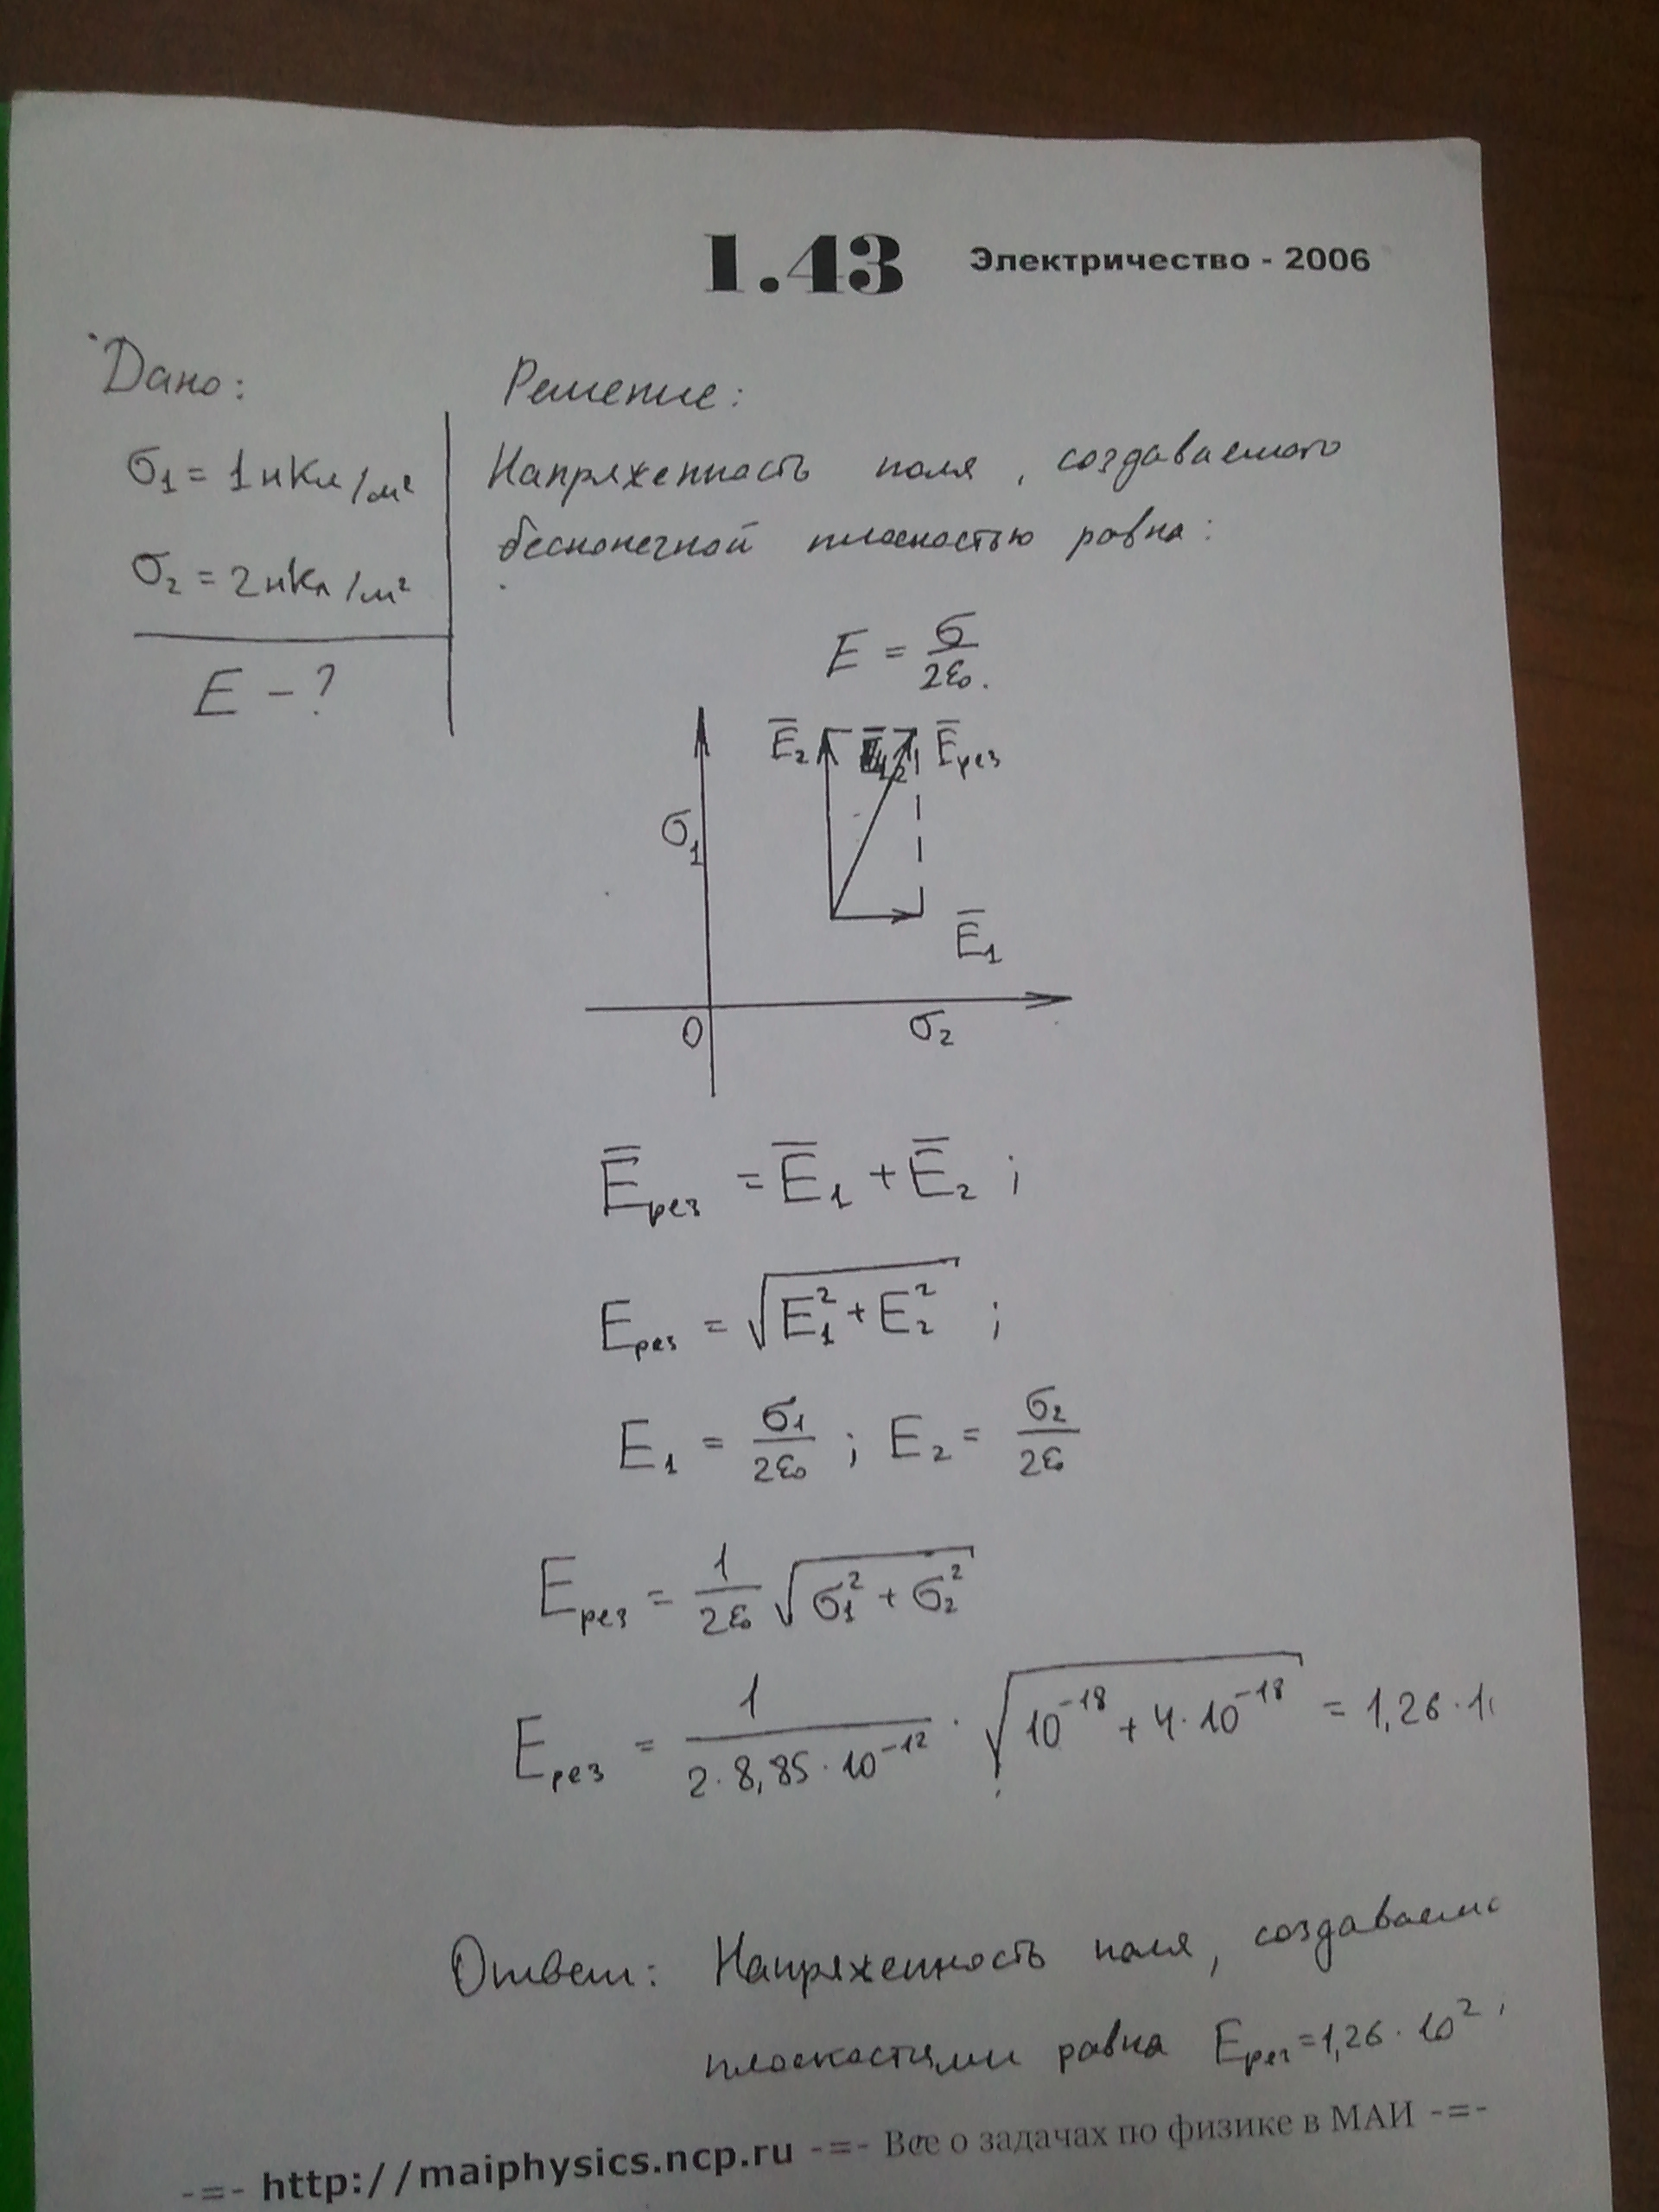 1.43 Электричество - 2006
Дано:
σ₁ = 1 нКл/м²
σ₂ = 2 нКл/м²
E - ?
Решение:
Напряженность поля, создаваемого
бесконечной плоскостью равна:
E = σ/2ε₀.
E̅₂ E̅рез
σ₁
E̅₁
0 σ₂
E̅рез = E̅₁ + E̅₂ ;
Eрез = √(E₁² + E₂²) ;
E₁ = σ₁/2ε₀ ; E₂ = σ₂/2ε₀
Eрез = 1/2ε₀ √(σ₁² + σ₂²)
Eрез = 1/(2·8,85·10⁻¹²) · √(10⁻¹⁸ + 4·10⁻¹⁸) = 1,26·1
Ответ: Напряженность поля, создаваемо
плоскостями равна Eрез = 1,26·10²
-=- http://maiphysics.ncp.ru -=- Все о задачах по физике в МАИ -=-